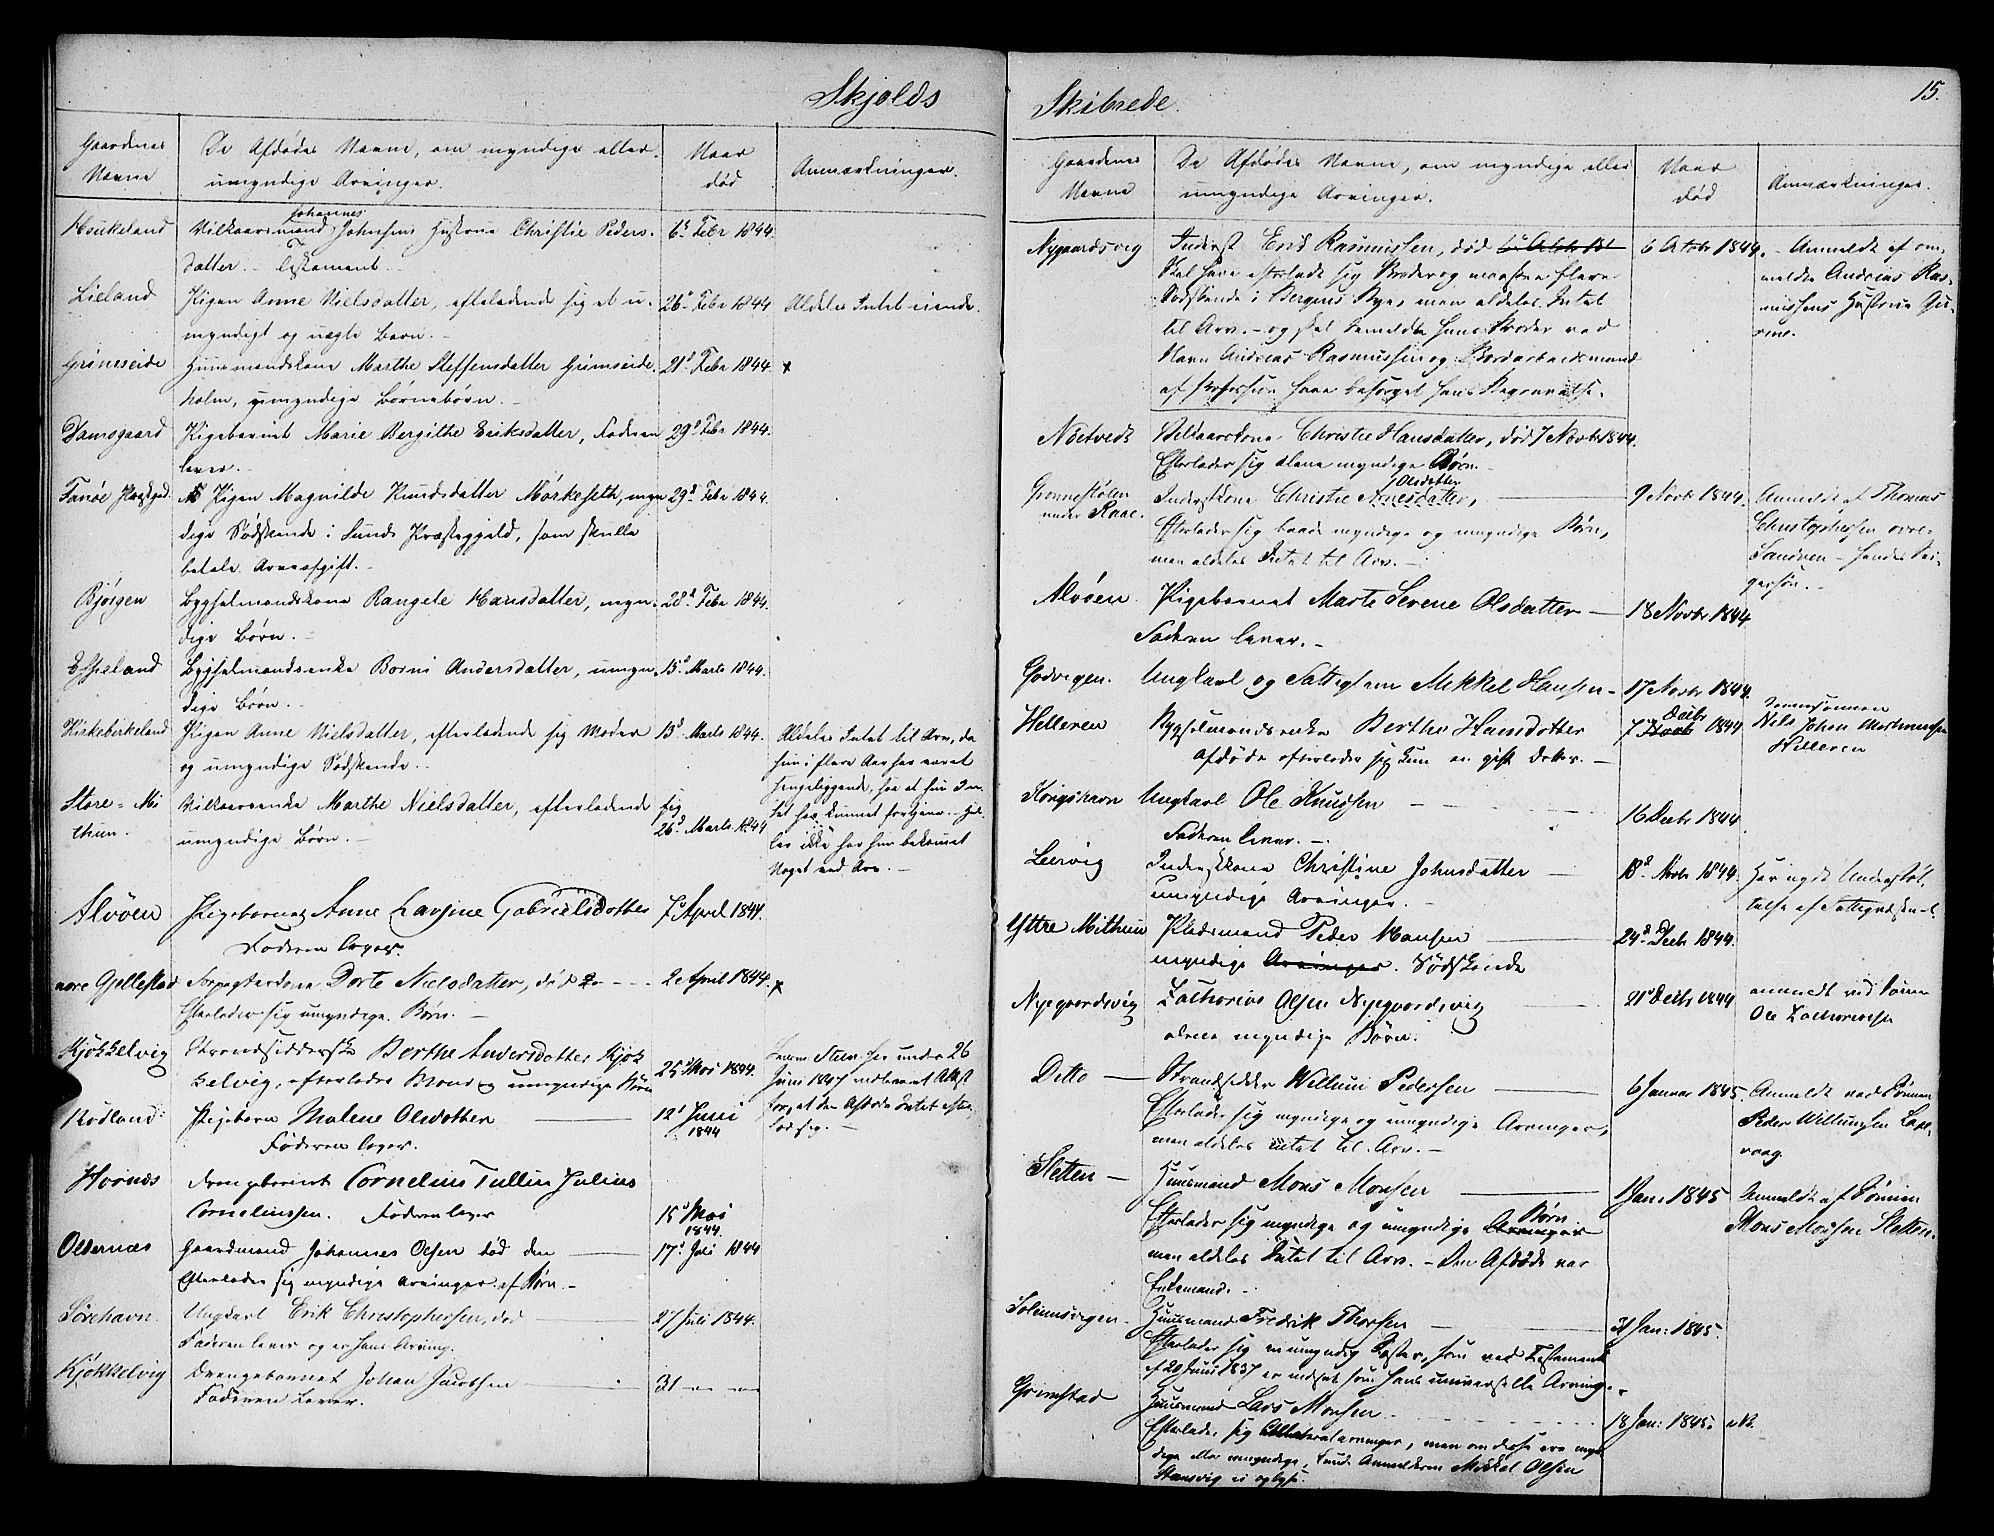 Skjolds
Gaardenes
Navne
De Afdødes Navne, om myndige eller
umyndige Arvinger.
Naar
død
Anmærkninger.
Haukeland
Johannes
Vilkaarsmand Johnsens Hustrue Christie Peders-
datter. - Testament.
6 Febr 1844
Lieland
Pigen Anne Nielsdatter, efterladende sig et u-
myndigt og uægte Barn.
26d Febr 1844
Aldeles Intet eiende.
Grimseide
Huusmandskone Marthe Steffensdatter Grimseide-
holm, umyndige Børnebørn.
21d Febr 1844.
x
Damsgaard
Pigebarnet Marie Bergithe Eriksdatter, Faderen
lever.
29d Febr 1844.
Fanøe Præstgd.
Pigen Magnilde Knudsdatter Mørkeseth, myn-
dige Sødskende i Sunds Præstegjeld, som skulle
betale Arveafgift.
29d Febr 1844.
Bjørgen
Bygselmandskone Rangele Hansdatter, myn-
dige Børn.
28d Febr 1844.
Espeland
Bygselmandsenke Borni Andersdatter, umyn-
dige Børn.
15d Marts 1844.
Kirkebirkeland
Pigen Anne Nielsdatter, efterladende sig Moder
og umyndige Sødskende.
15d Marts 1844.
Aldeles Intet til Arv, da
hun i flere Aar har været
sengeliggende, saa at hun In-
tet har kunnet fortjene. - Hel-
ler ikke har hun bekommet
Noget ved Arv.
Store-Mi
thun.
Vilkaarsenke Marthe Nielsdatter, efterladende sig
umyndige Børn.
26d Marts 1844
Alvøen
Pigebarnet Anne Lavsine Gabrielsdotter
Faderen lever.
7d April 1844.
nore Gjellestad
Forpagterkone Dorte Nielsdatter, død
Efterlader sig umyndige Børn.
2 April 1844.
x
Kjøkkelvig
Strandsidderske Berthe Andersdotter Kjøk
kelvig, efterlader Mand og umyndige Børn
25 Mai 1844.
26
Juni 1847 Attest
for, at den Afdøde Intet efter
lod sig.
Rødland
Pigebarn Malene Olsdotter
Faderen lever.
12d Juni
1844
Hornæs
Drengebarnet Cornelius Tullin Julius
Corneliussen. Faderen lever
15d Mai
1844.
Oldernæs
Gaardmand Johannes Olsen død den
Efterlader sig myndige Arvinger af Børn.
17d Juli 1844
Sørehavn.
Ungkarl Erik Christophersen, død
Faderen lever og er hans Arving.
27 Juli 1844.
Kjøkkelvig
Drengebarnet Johan Jacobsen
Faderen lever.
31
Skibrede.
15.
Gaardenes
Navne
De Afdødes Navne, om myndige eller
umyndige Arvinger.
Naar
død
Anmærkninger.
Nygaardsvig
Inderst Erik Rasmussen, død
Skal have efterladt sig Broder og maaskee flere
Sødskende i Bergens Bye, men aldeles Intet
til Arv. - og skal bemeldte hans Broder ved
Navn Andreas Rasmussen og Bordarbeidsmand
af Profession have besørget hans Begravelse.
6 Octobr 1844.
- Anmeldt af om-
meldte Andreas Ras-
mussens Hustrue Gu-
rine.
Nøetvedt
Vilkaarskone Christie Hansdatter, død 7 Novbr 1844.
Efterlader sig alene myndige Børn.
Grønnestølen
under Raae.
Olsdatter
Inderstkone Christie Arnesdatter,
Efterlader sig baade myndige og umyndige Børn,
men aldeles Intet til Arv.
9 Novbr 1844.
Anmeldt af Thomas
Christophersen ovre-
Sandven - hendes Svi-
gersøn.
Alvøen.
Pigebarnet Marte Serene Olsdatter
Faderen lever.
18 Novbr 1844
Godvigen.
Ungkarl og Fattiglem Mikkel Hansen
17 Novbr 1844.
Helleren
Bygselmandsenke Berthe Hansdotter
Afdøde efterlader sig kun en gift Datter.
Decbr
7 Novbr 1844
Nils Johan Mortensen
Helleren
Kongshavn
Ungkarl Ole Knudsen
Faderen lever.
16 Decbr 1844
Leirvig
Inderstkone Christine Johnsdatter
umyndige Arvinger.
18d Novbr 1844.
Har nydt Understøt-
telse af Fattigvæsenet
Yttre Mithun
Pladsmand Peder Hansen
myndige Arvinger. Sødskende
24d Decbr 1844.
Nygaardsvig
Zacharias Olsen Nygaardsvig
alene myndige Børn.
21d Decbr 1844
anmeldt ved Sønnen
Ole Zachariasen
Detto
Strandsidder Willum Pedersen
Efterlader sig myndige og umyndige Arvinger,
men aldeles intet til Arv.
6 Januar 1845.
Anmeldt ved Sønnen
Peder Willumsen Laxe-
vaag.
Sletten
Huusmand Mons Monsen
Børn
Efterlader sig myndige og umyndige Arvinger
men aldeles Intet til Arv. - Den Afdøde var
Enkemand.
1 Jan: 1845
Anmeldt af Sønnen
Mons Monsen Sletten.
Solemsvigen
Huusmand Fredrik Thorsen
Efterlader sig en umyndig Søster, som ved Testament
af 20 Juni 1837 er indsat som hans universelle Arving.
31 Jan: 1845.
Grimstad
Huusmand Lars Monsen
Efterlader sig Collateralarvinger, men om disse ere myn-
dige eller umyndige, kunde Anmelderen Mikkel Olsen
Stensvig ei opgive.
18 Jan: 1845.
NB.